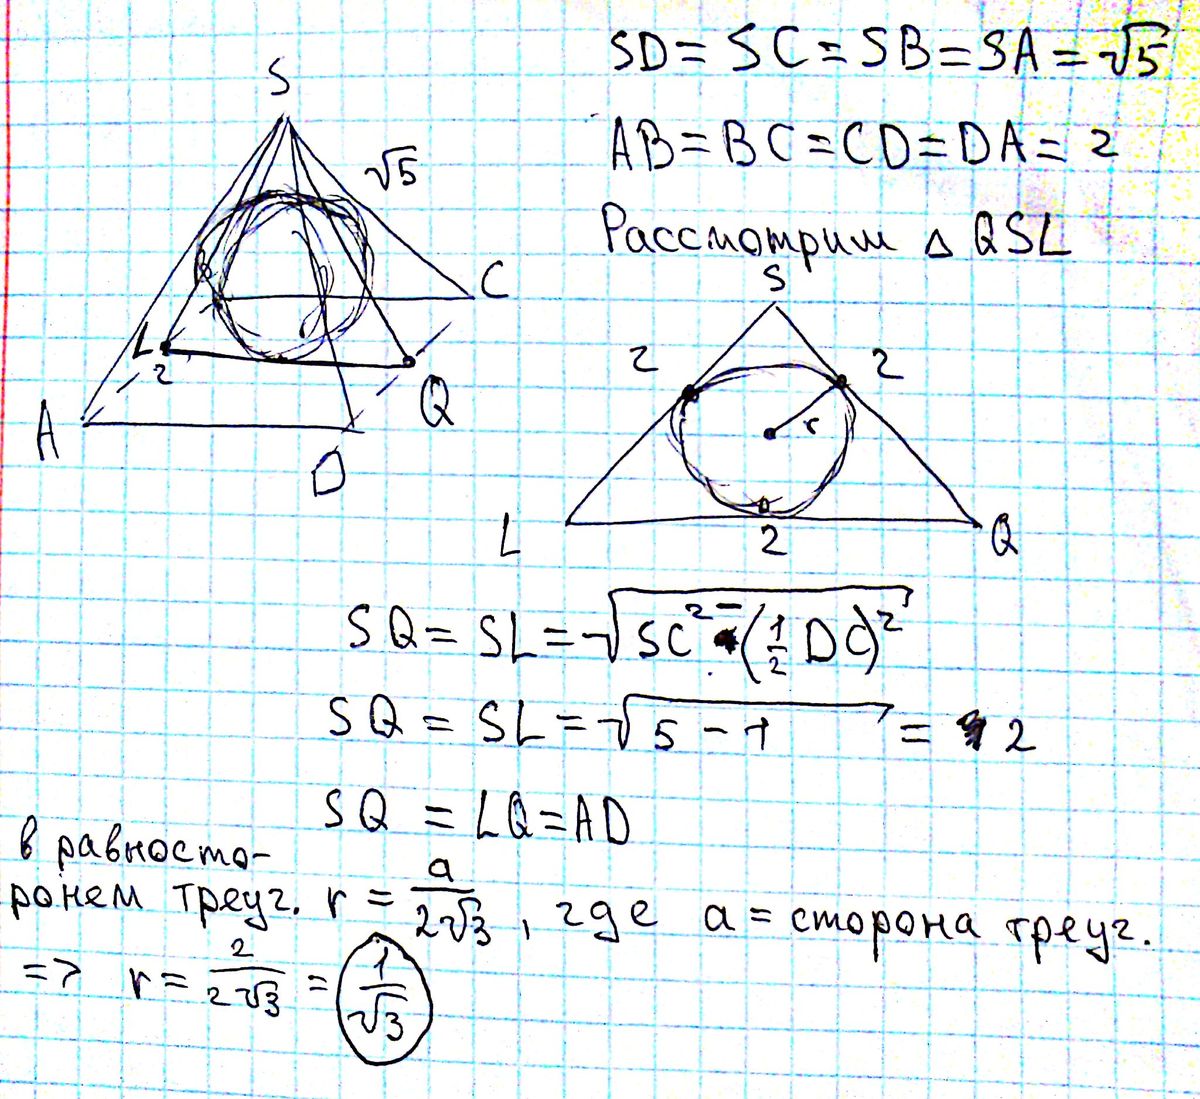 SD = SC = SB = SA = √5
AB = BC = CD = DA = 2
Рассмотрим Δ QSL
S
√5
B
C
L
2
Q
A
D
S
2
2
r
L
2
Q
SQ = SL = √(SC² - (1/2 DC)²)
SQ = SL = √(5 - 1) = 2
SQ = LQ = AD
в равносто-
ронем треуг. r = a/(2√3), где a = сторона треуг.
=> r = 2/(2√3) = 1/√3